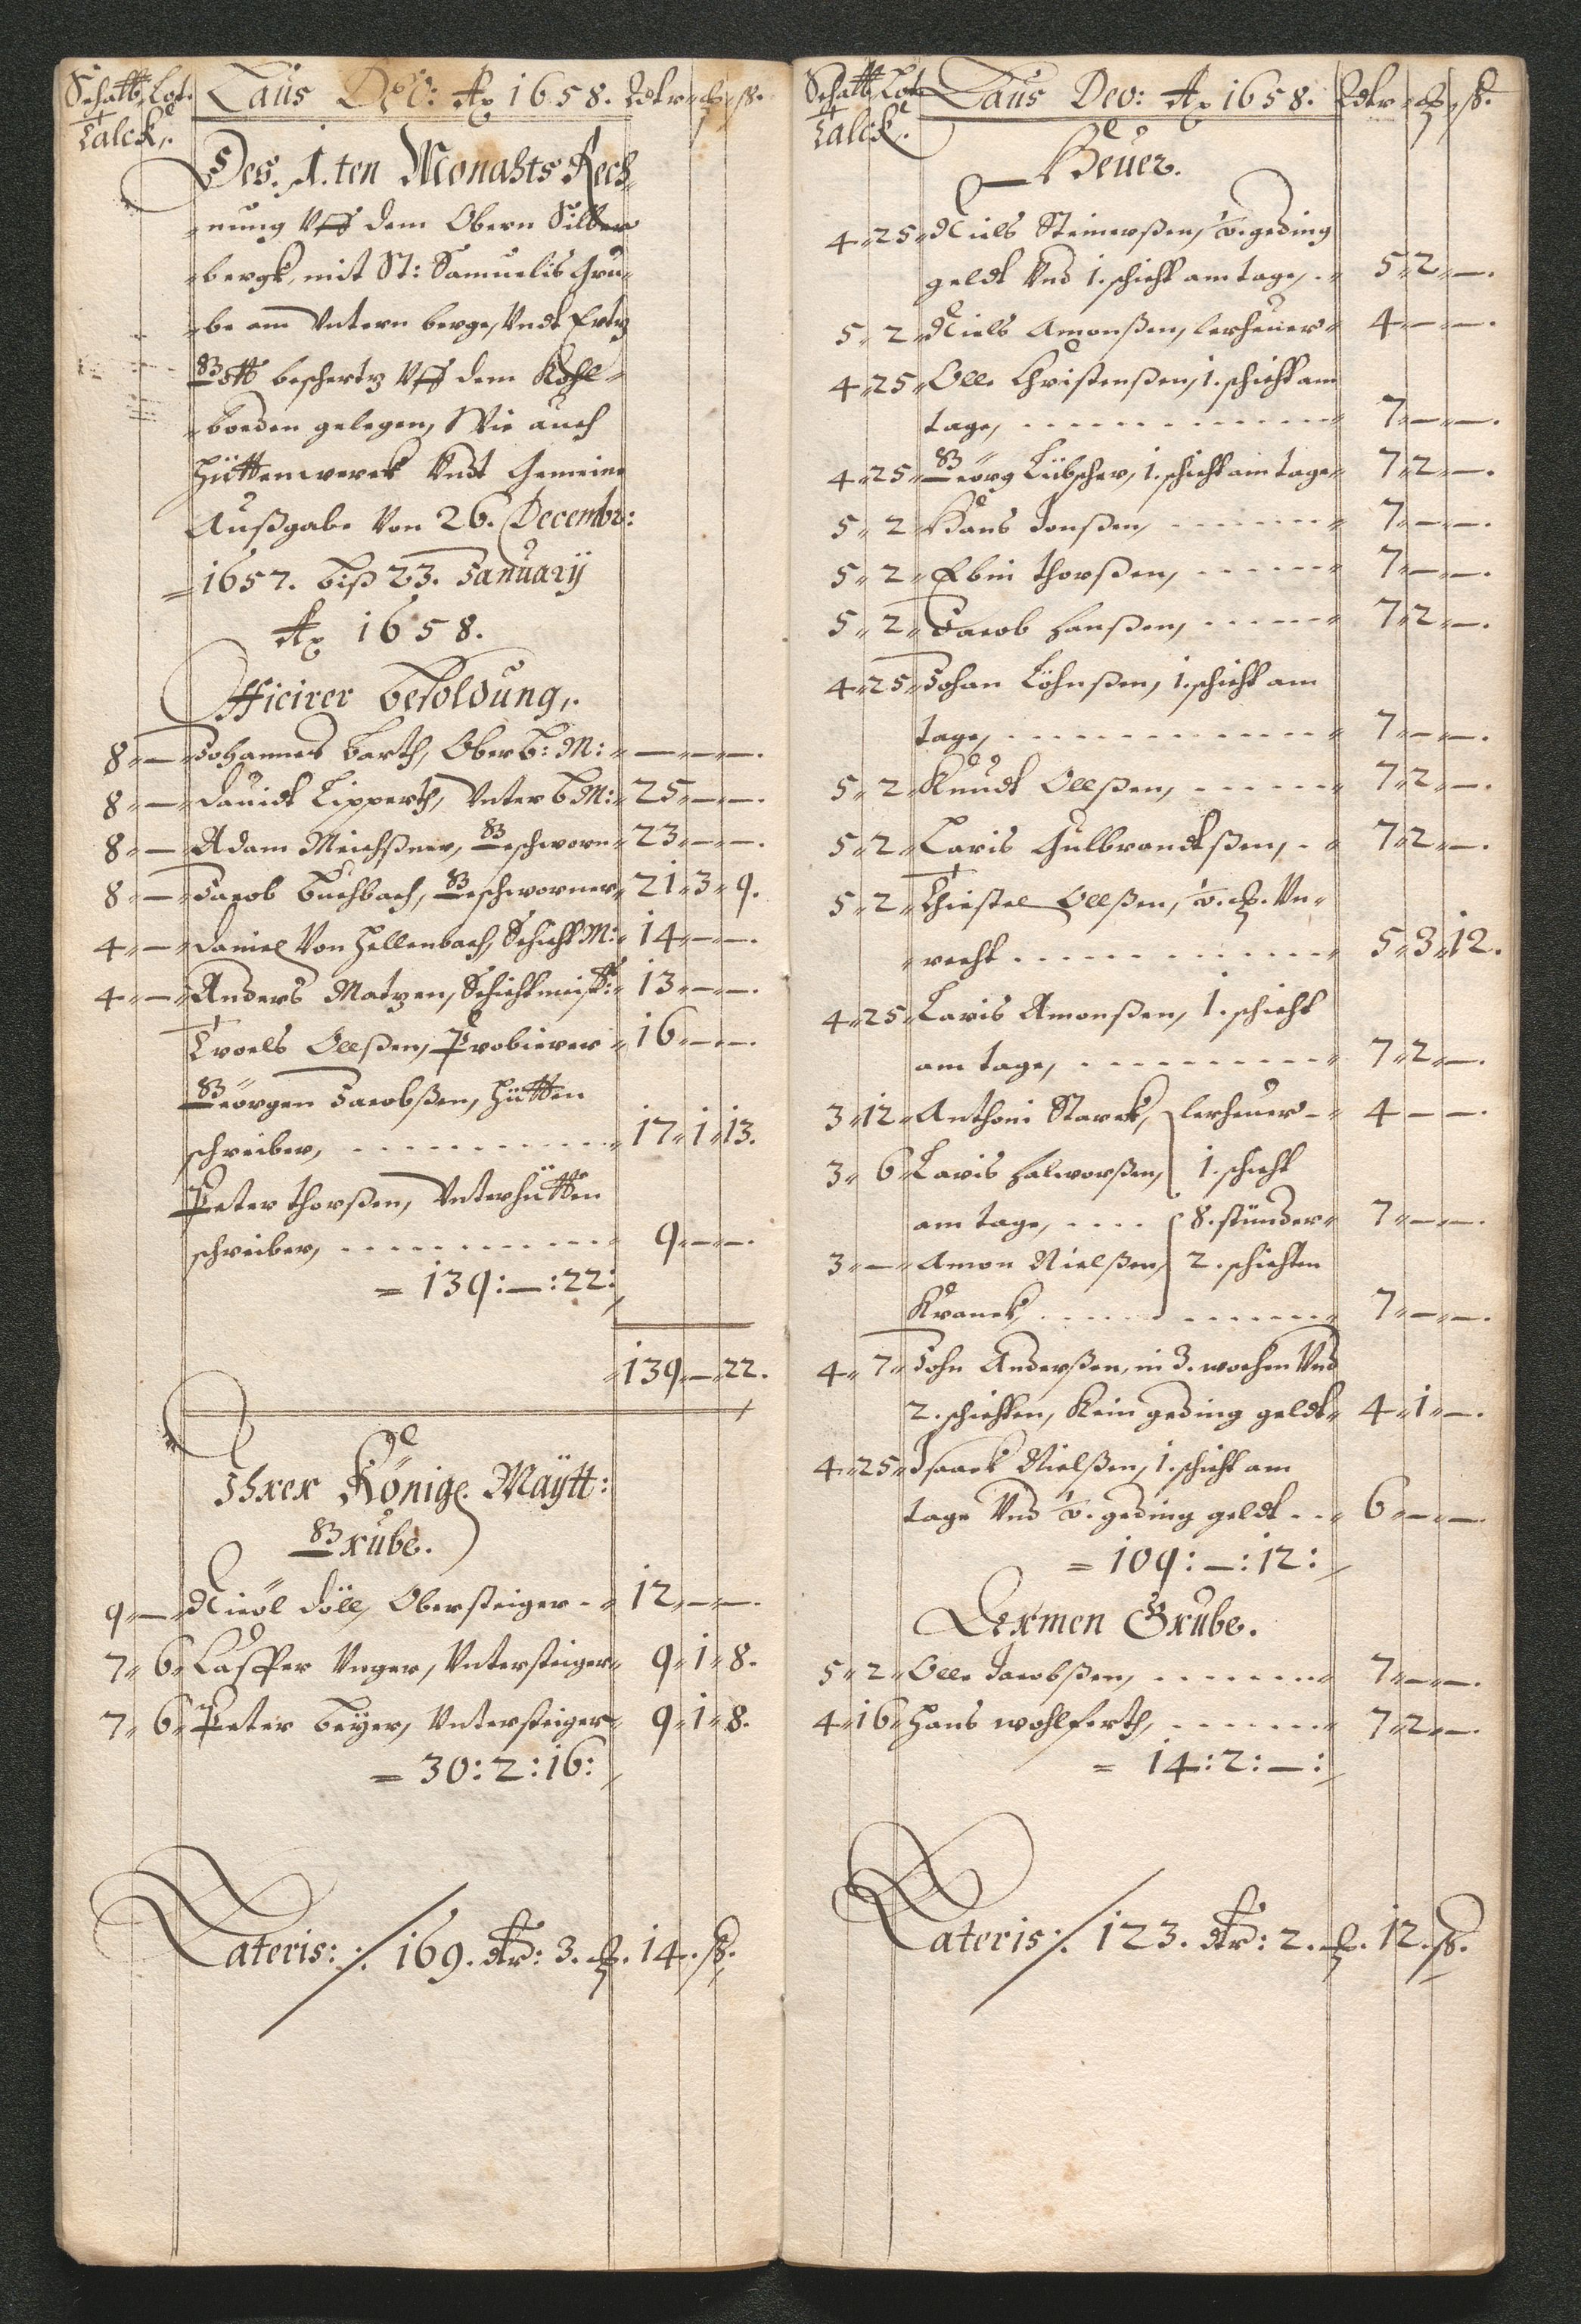 Schatt Lot. Laus Deo: Ao 1658. Rdlr ß.
Talck.
Des. 1.ten Monahts Rech
nung Uff dem Obern Silber
bergk, mit St: Samuelis Gru
be am Untern berge, Undt Ertz
Gott beschertz Uff dem Kohl
boeden gelegen, Wie auch
Hüttenwerck Undt Gemeine
Außgabe Von 26. Decembr:
1657. biß 23. January
Ao 1658.
Officirer besoldung.
8 — Johannes Barth, Ober B: M: — — —.
8 — Davidt Lipperth, Unter B M: 25 — —.
8 — Adam Meichßner, Geschworn 23 — —.
8 — Jacob Buchbach, Geschworner 21 3 9.
4 — Daniel Von Hellenbach, Schicht M: 14 — —.
4 — Anders Matzen, Schichtmeist: 13 — —.
Troels Ollßen, Probierer 16 — —.
Geörgen Jacobßen, Hütten
schreiber, 17 1 13.
Peter Thorßen, Unterhütten
schreiber, 9 — —.
= 139: — : 22:
139 — 22.
Ihrer Könige Mäytt:
Grube.
9 — Nicol Döll, Obersteiger 12 — —.
7 6 Casper Unger, Untersteiger 9 1 8.
7 6 Peter Beyer, Untersteiger 9 1 8.
= 30: 2: 16:
Lateris: 169. dlr: 3. 14. ß.
Schatt Lot Laus Deo: Ao 1658. Rdlr ß.
Talck.
Heuer.
4 25 Niels Steinerßen, geding
geldt Und 1. schicht am tage, 5 2 —.
5 2 Niels Amonßen, lerheuer 4 — —.
4 25 Olle Christenßen, 1. schicht am
tage, 7 — —.
4 25 Geörg Lübscher, 1. schicht am tage 7 2 —.
5 2 Hans Jonßen, 7 — —.
5 2 Ebin Thorßen, 7 — —.
5 2 Jacob Hanßen, 7 2 —.
4 25 Johan Löhnßen, 1. schicht am
tage, 7 — —.
5 2 Knudt Ollßen, 7 2 —.
5 2 Laris Gulbrandtßen, 7 2 —.
5 2 Chistel Ollßen, Un
recht 5 3 12.
4 25 Laris Amonßen, 1. schicht
am tage, 7 2 —.
3 12 Anthoni Starck, lerheuer 4 — —.
3 6 Laris Halworßen, 1. schicht
am tage, 8. stünder 7 — —.
3 — Amon Nielßen, 2. schichten
Kranck, 7 — —.
4 7 John Anderßen, in 3. wochen Und
2. schichten, Kein geding geldt 4 1 —.
4 25 Isaack Nielßen, 1. schicht am
tage Und geding geldt 6 — —.
= 109: — : 12:
Lexmen Grube.
5 2 Olle Jacobßen, 7 — —.
4 16 Hans Wohlferth, 7 2 —.
= 14: 2: — :
Lateris: 123. dlr: 2. 12. ß.